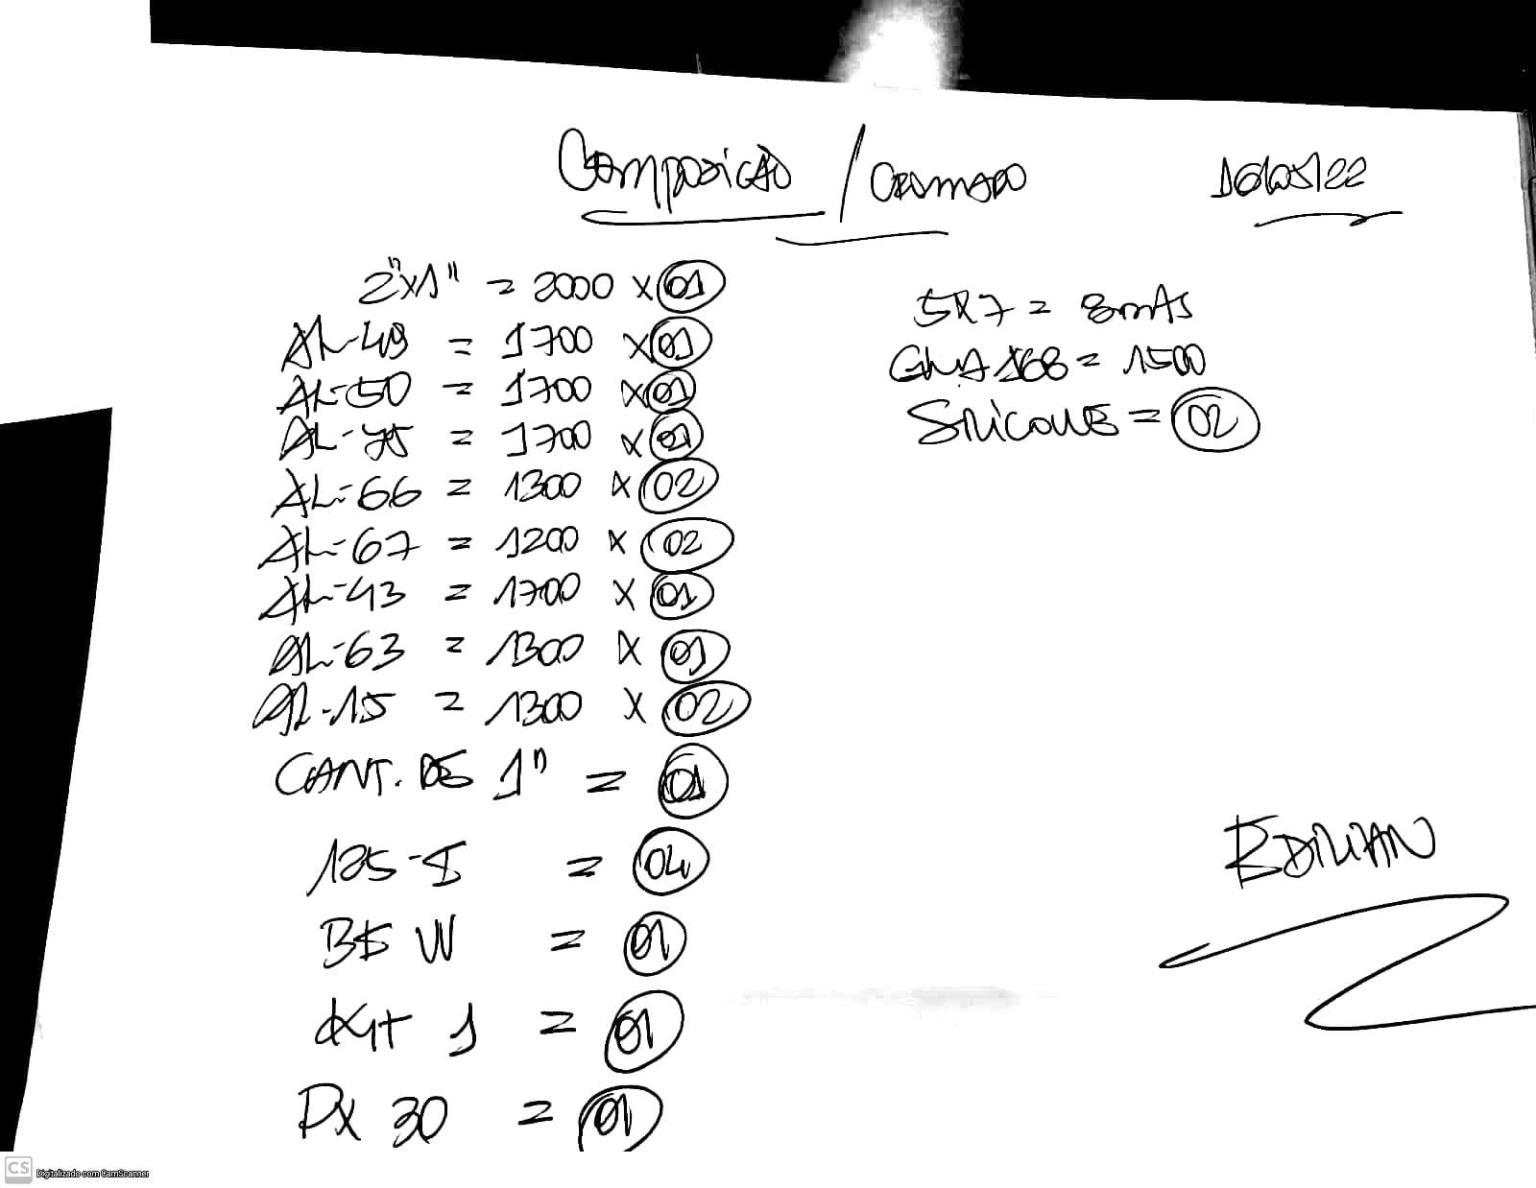 Composição / Cromado 16/05/22
2"x1" = 2000 x 01
AL-49 = 1700 x 01
AL-50 = 1700 x 01
AL-75 = 1700 x 01
AL-66 = 1300 x 02
AL-67 = 1200 x 02
AL-43 = 1700 x 01
AL-63 = 1300 x 01
AL-15 = 1300 x 02
CANT. DE 1" = 01
125-I = 04
= 01
Kit 1 = 01
PX 30 = 01
5x7 = 8mts
= 1500
SILICONE = 02
EDILIAN
CS Digitalizado com CamScanner